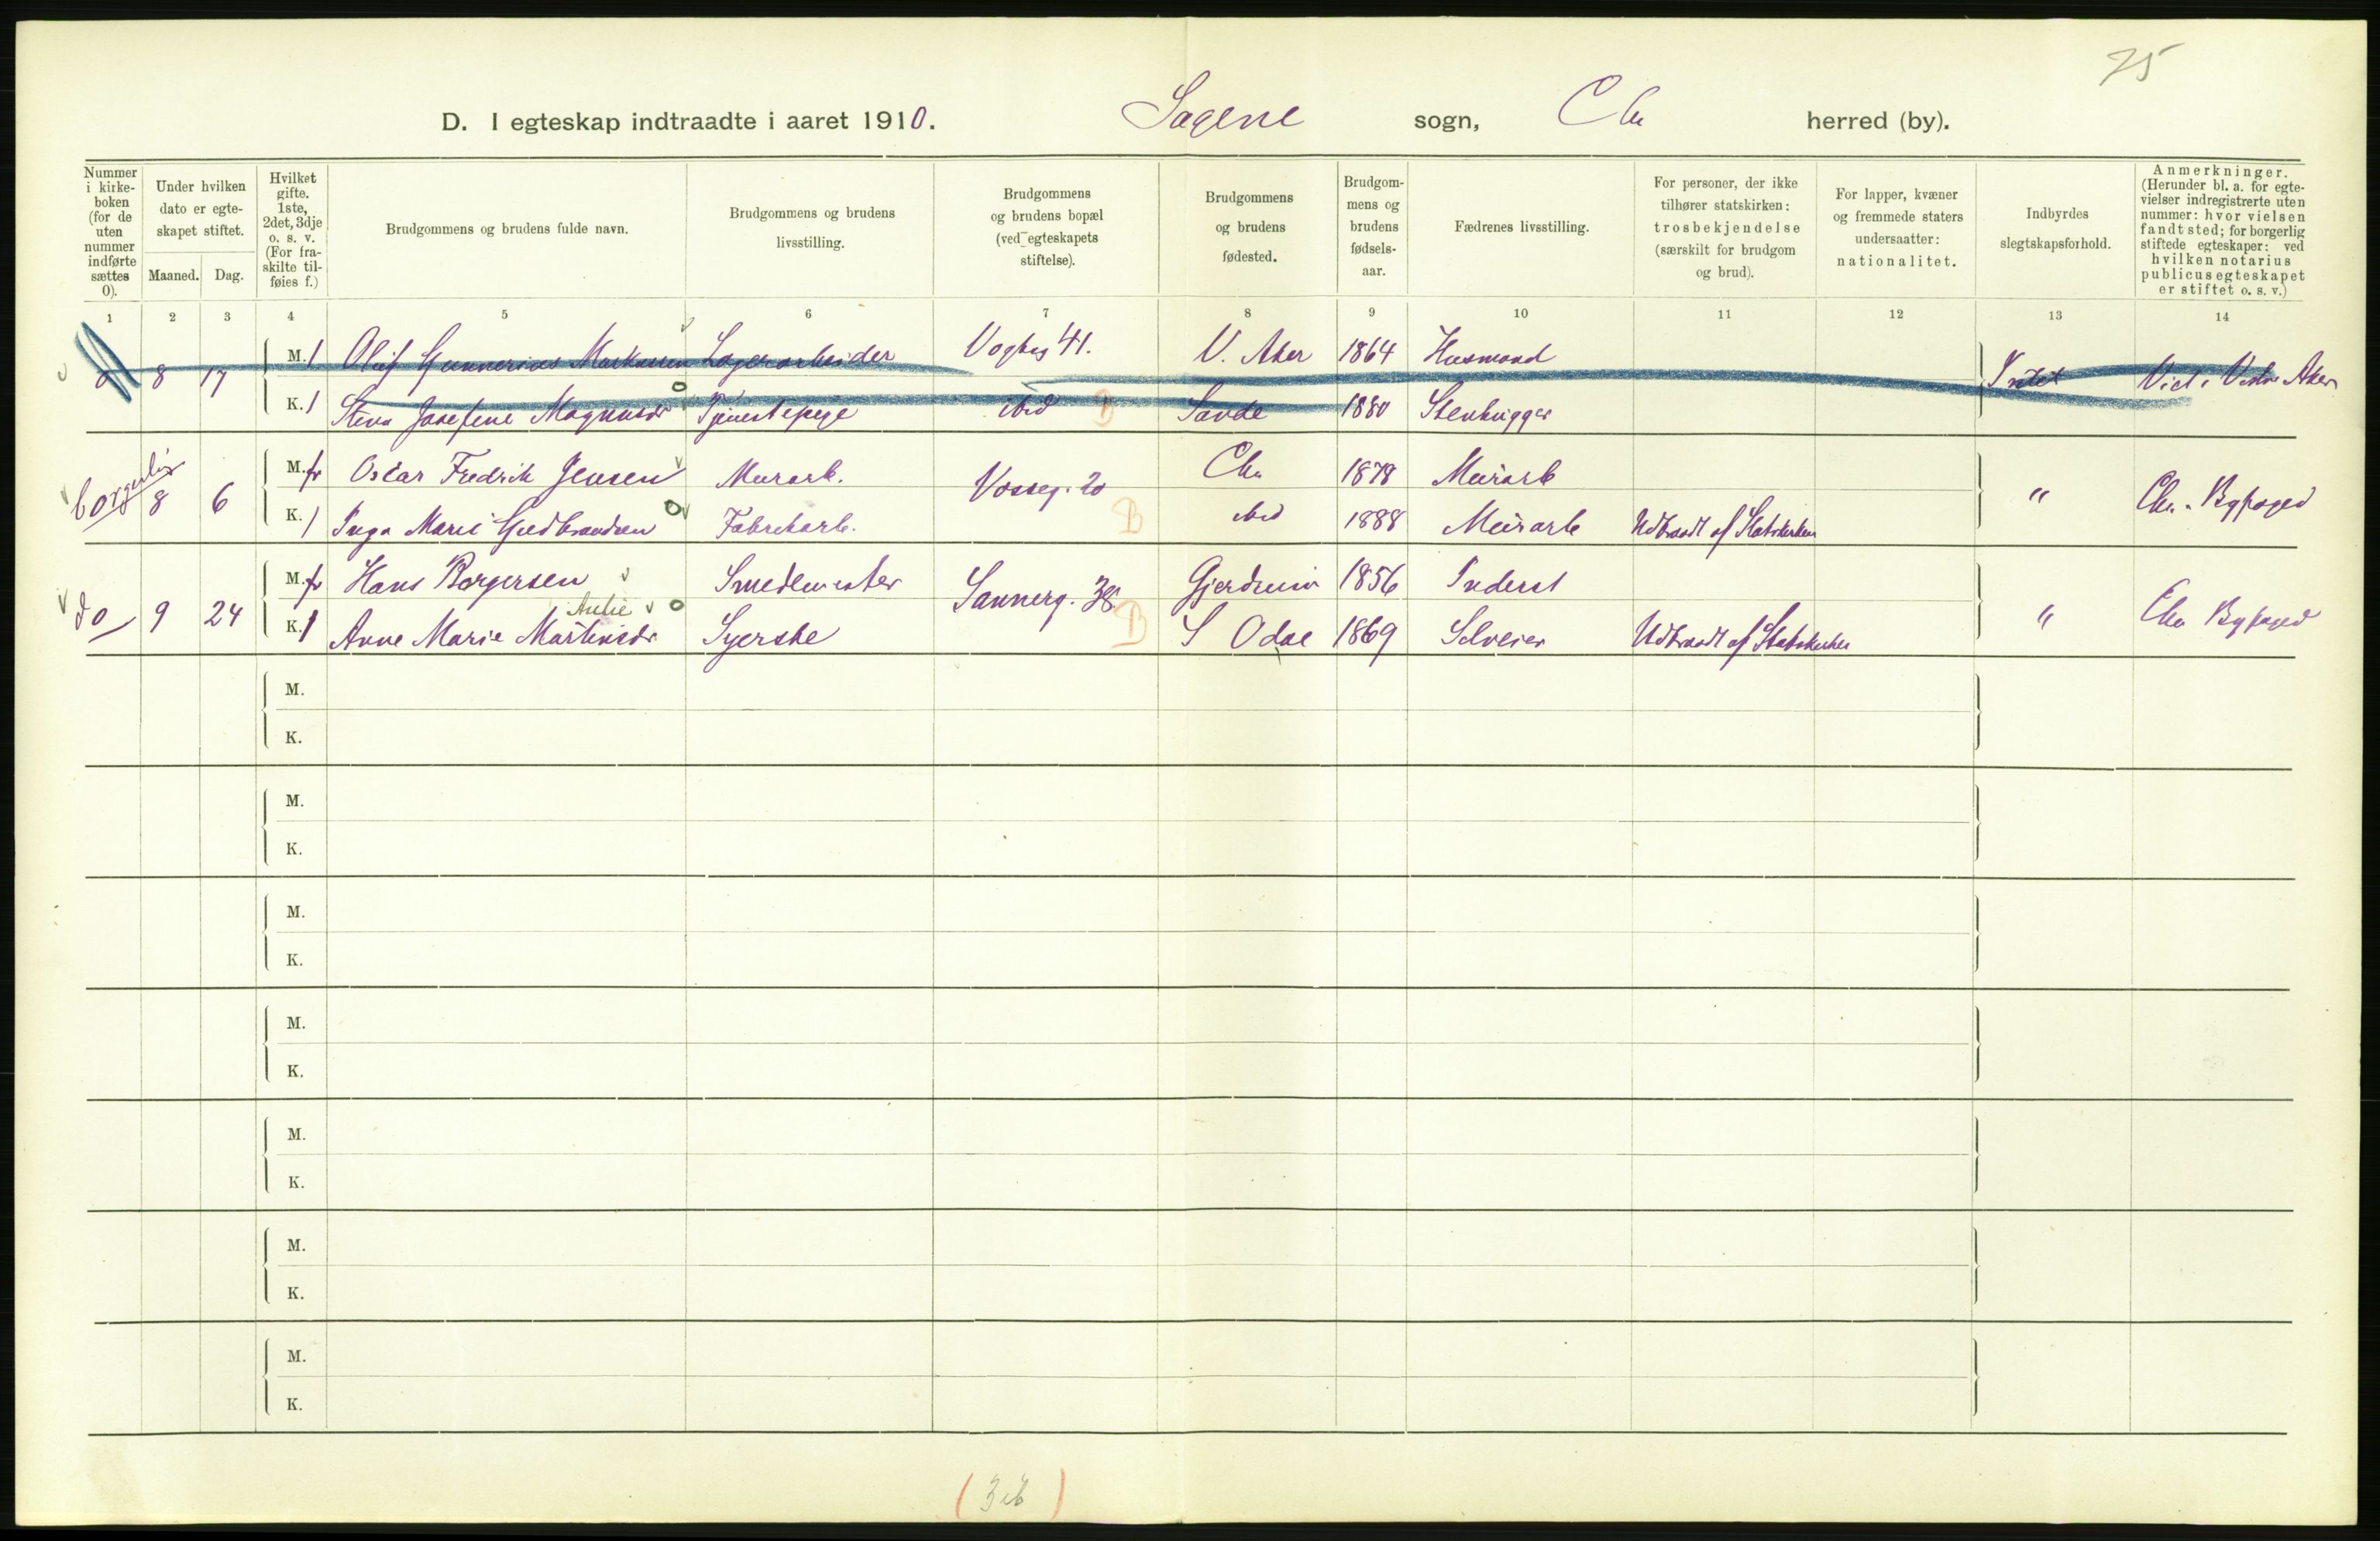 75
D. I egteskap indtraadte i aaret 1910. Sagene sogn, Chr herred (by).
Nummer i kirke-boken (for de uten nummer indførte sættes 0).
Under hvilken dato er egte-skapet stiftet.
Maaned. Dag.
Hvilket gifte. 1ste, 2det, 3dje o. s. v. (For fra-skilte til-føies f.)
Brudgommens og brudens fulde navn.
Brudgommens og brudens livsstilling.
Brudgommens og brudens bopæl (ved egteskapets stiftelse).
Brudgommens og brudens fødested.
Brudgom-mens og brudens fødsels-aar.
Fædrenes livsstilling.
For personer, der ikke tilhører statskirken: trosbekjendelse (særskilt for brudgom og brud).
For lapper, kvæner og fremmede staters undersaatter: nationalitet.
Indbyrdes slegtskapsforhold.
Anmerkninger. (Herunder bl. a. for egte-vielser indregistrerte uten nummer: hvor vielsen fandt sted; for borgerlig stiftede egteskaper: ved hvilken notarius publicus egteskapet er stiftet o. s. v.)
1 2 3 4 5 6 7 8 9 10 11 12 13 14
0 8 17 M. 1 Oluf Gunnerius Markussen Lagerarbeider Vogtsg 41. V. Aker 1864 Husmand Intet Viet i Vestre Aker
K. 1 Josefine Magnusdr Tjenestepige ibid B Sande 1880 Stenhugger
borgerlig 8 6 M. fr Oscar Fredrik Jensen Murarb. Vosseg. 20 Chr 1878 Murarb " Chr. Byfoged
K. 1 Inga Marie Gudbrandsen Fabrikarb. B ibid 1888 Murarb Udtraadt af Statskirken
do 9 24 M. fr Hans Borgersen Smedmester Sannerg. 38. Gjerdrum 1856 Inderst " Chr Byfoged
K. 1 Anne Marie Martinsdr Syerske B S Odal 1869 Selveier Udtraadt af Statskirken
M.
K.
M.
K.
M.
K.
M.
K.
M.
K.
M.
K.
M.
K.